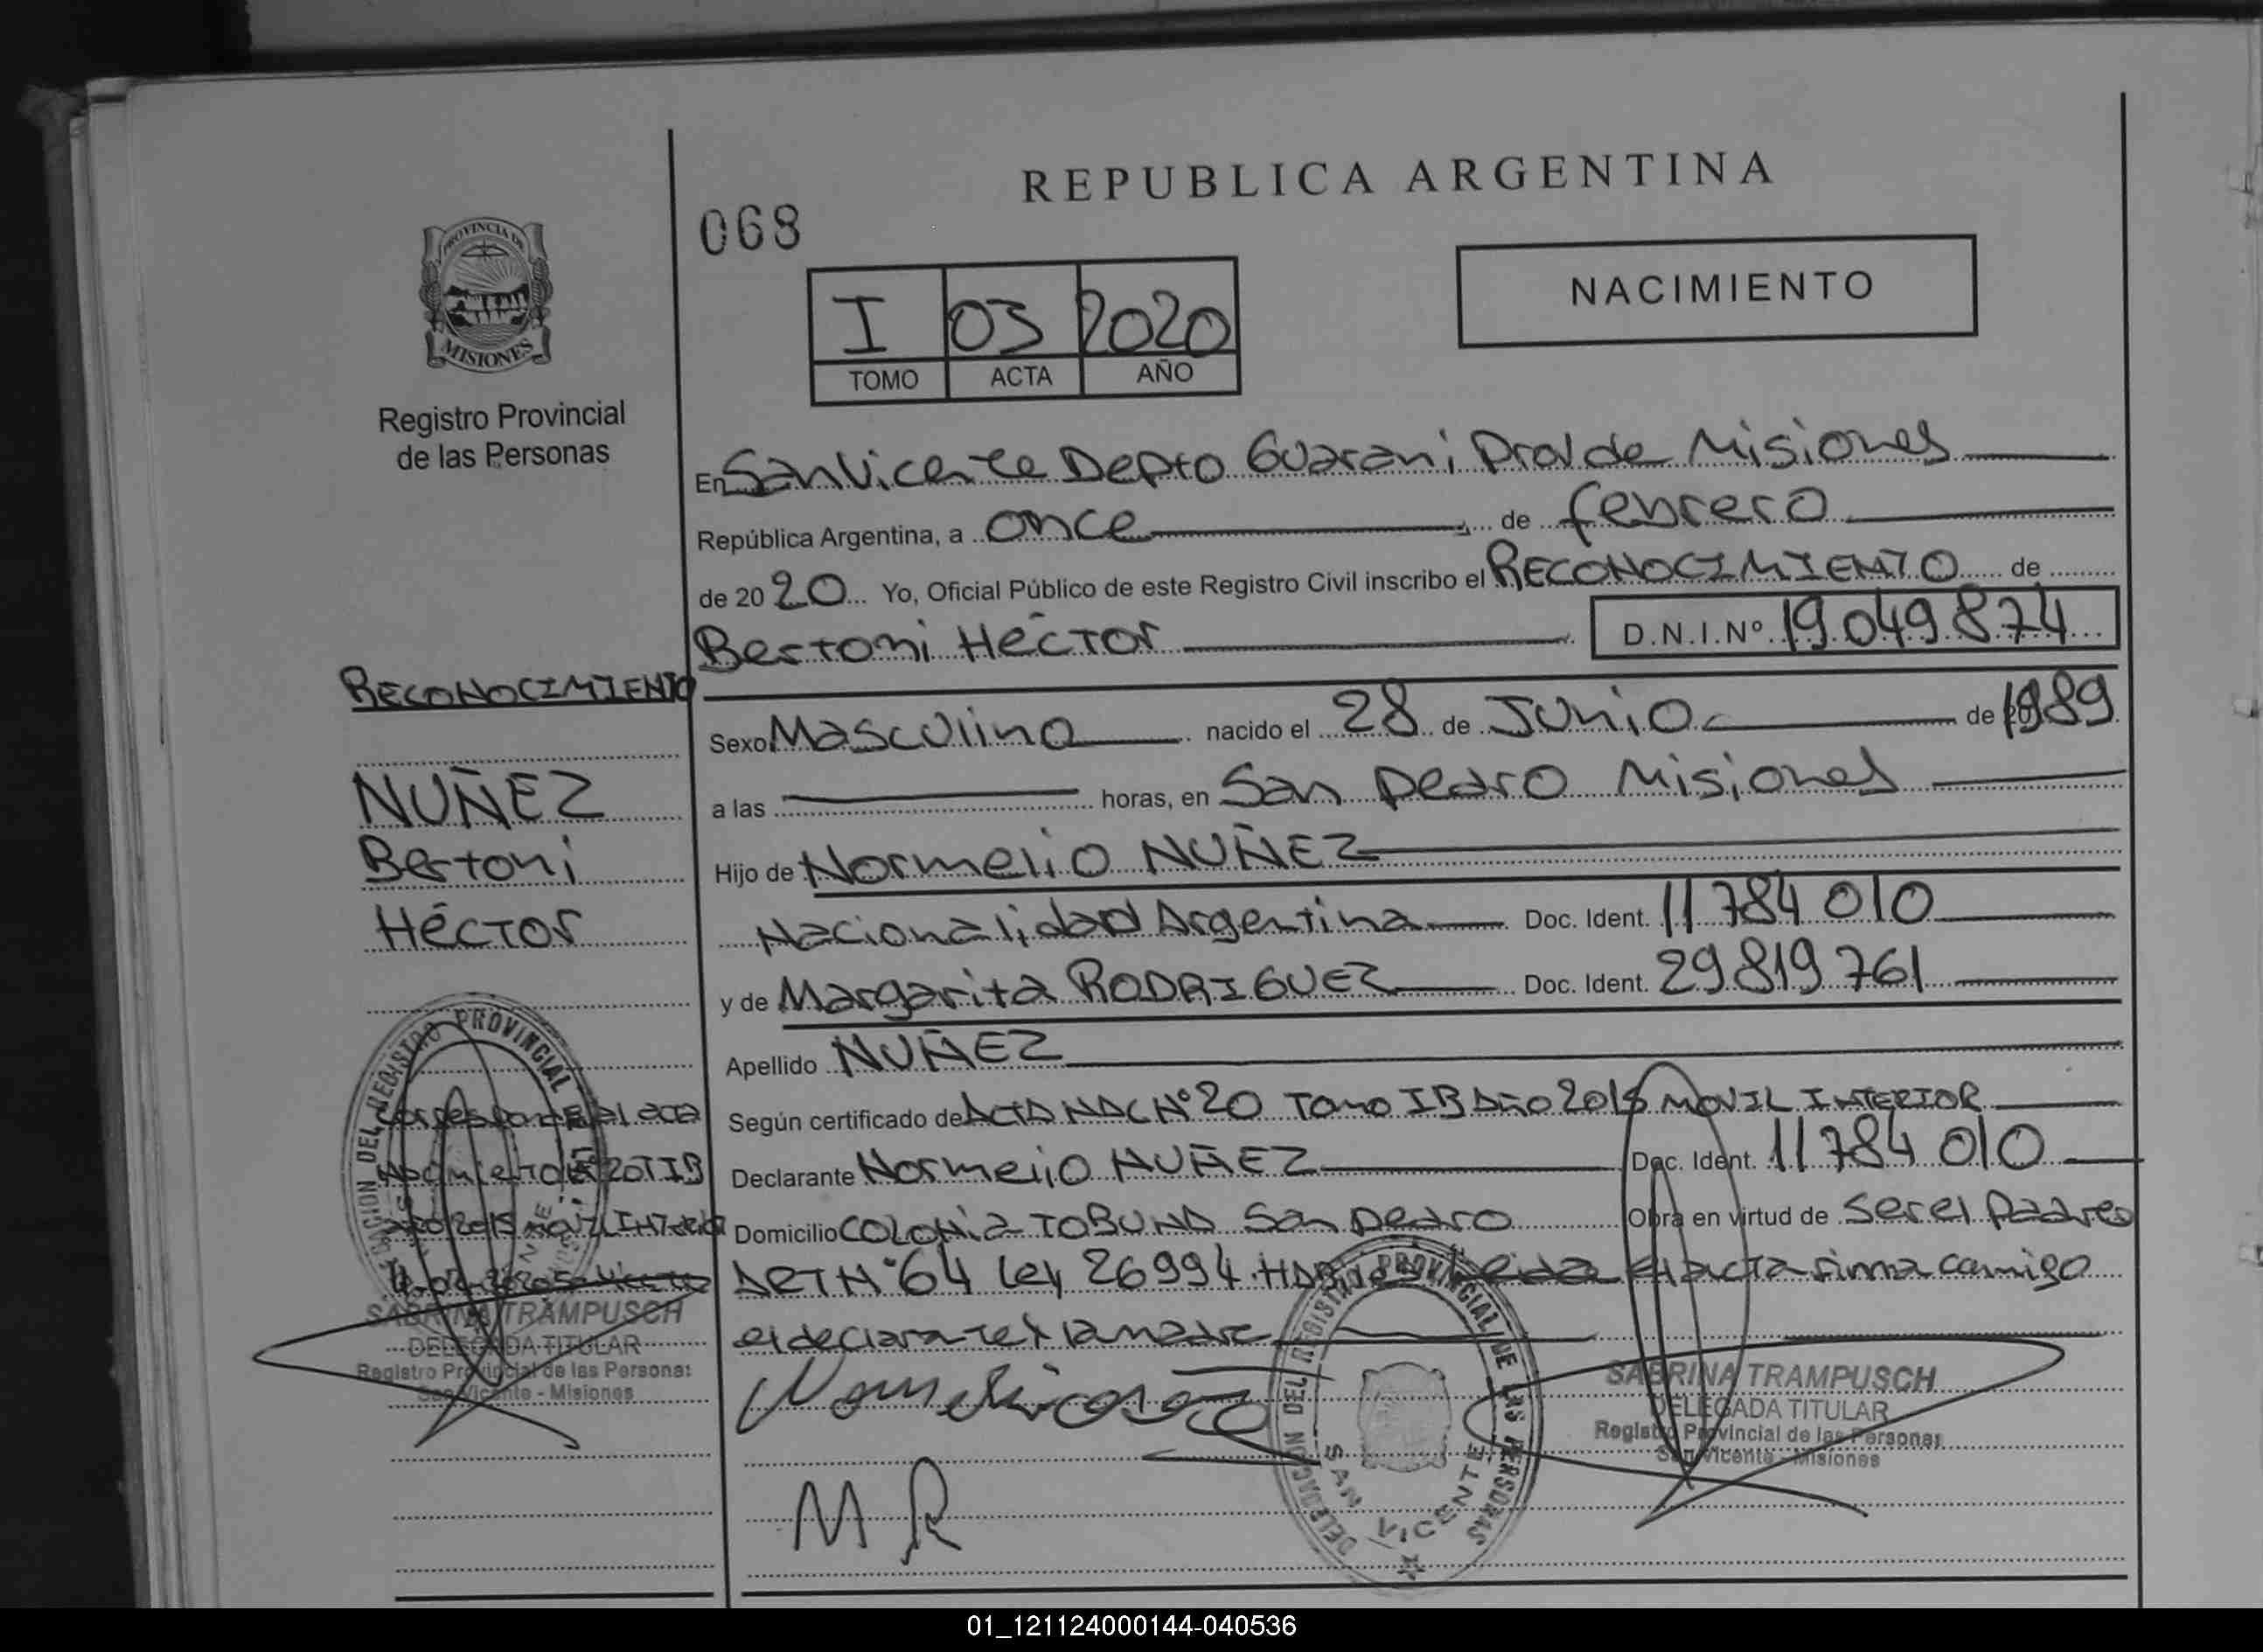 REPUBLICA ARGENTINA
068
NACIMIENTO
I 03 2020
TOMO ACTA AÑO
PROVINCIA DE
MISIONES
Registro Provincial
de las Personas
En San Vicente Depto Guarani Prov de Misiones
República Argentina, a once de febrero
de 20 20 Yo, Oficial Público de este Registro Civil inscribo el RECONOCIMIENTO de
Bertoni Héctor D.N.I.Nº 19 049 874
Sexo Masculino nacido el 28 de Junio de 1989
a las horas, en San Pedro Misiones
Hijo de Normelio NUÑEZ
Nacionalidad Argentina Doc. Ident. 11 784 010
y de Margarita RODRIGUEZ Doc. Ident. 29 819 761
Apellido NUÑEZ
Según certificado de ACTA NAC Nº 20 Tomo IB Año 2015 MOVIL INTERIOR
Declarante Normelio NUÑEZ Doc. Ident. 11 784 010
Domicilio COLONIA TOBUNA San Pedro Obra en virtud de ser el Padre
ART Nº 64 Ley 26994 Leida el acta firma conmigo
el declarante y la madre
M R
RECONOCIMIENTO
NUÑEZ
Bertoni
Héctor
Corresponde al acta
Nacimiento Nº 20 T IB
año 2015 MOVIL Interior
SABRINA TRAMPUSCH
DELEGADA TITULAR
Registro Provincial de las Personas
San Vicente - Misiones
DELEGACION DEL REGISTRO PROVINCIAL DE LAS PERSONAS
SAN VICENTE
SABRINA TRAMPUSCH
DELEGADA TITULAR
Registro Provincial de las Personas
San Vicente - Misiones
01_121124000144-040536